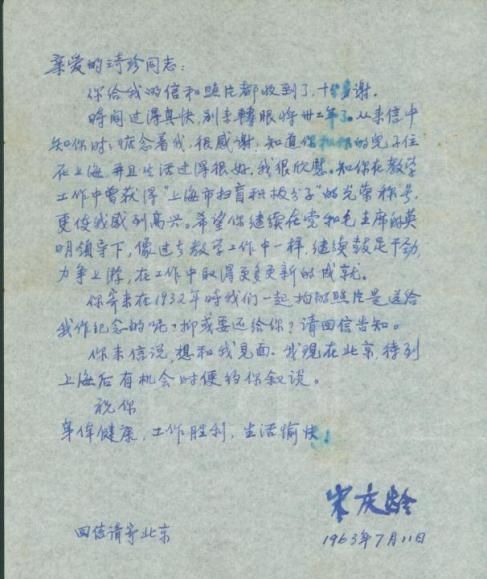 亲爱的琦珍同志：
你给我的信和照片都收到了，十分多谢。
时间过得真快，别来转眼将卅二年了。从来信中
知你时时惦念着我，很感谢，知道你和你的儿子住
在上海，并且生活过得很好，我很欣慰。知你在教学
工作中曾获得“上海市扫盲积极分子”的光荣称号，
更使我感到高兴。希望你继续在党和毛主席的英
明领导下，像过去教学工作中一样，继续鼓足干劲
力争上游，在工作中取得更多更新的成就。
你寄来在1932年时我们一起拍的照片是送给
我作纪念的呢？抑或要还给你？请回信告知。
你来信说，想和我见面，我现在北京，待到
上海后有机会时便约你叙谈。
祝你
身体健康，工作胜利，生活愉快！
宋庆龄
回信请寄北京
1963年7月11日